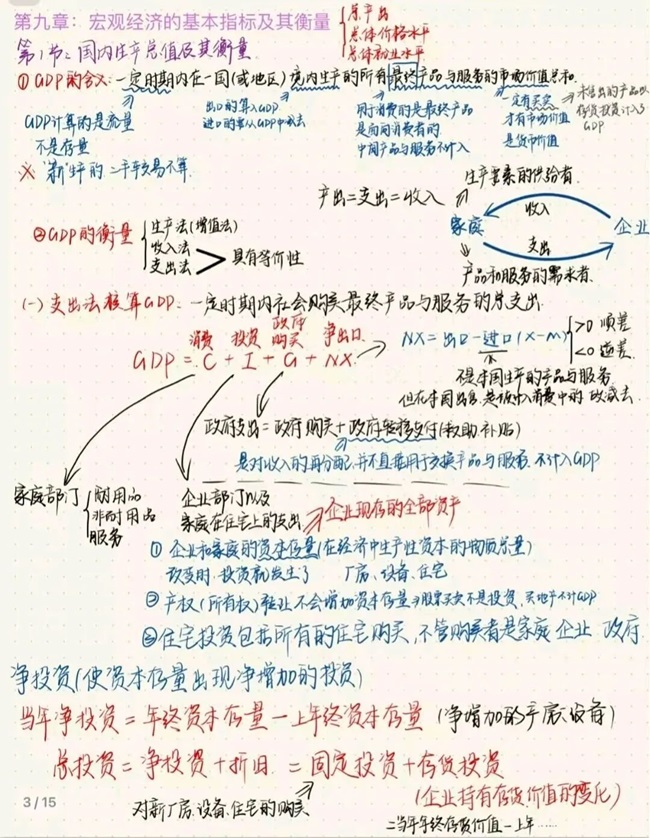 第九章：宏观经济的基本指标及其衡量
总产出
总体价格水平
总体就业水平
第1节：国内生产总值及其衡量
①GDP的含义:一定时期内在一国(或地区)境内生产的所有最终产品与服务的市场价值总和.
GDP计算的是流量
不是存量
出口的算入GDP
进口的要从GDP中减去
用于消费的是最终产品
是面向消费者的
中间产品与服务不计入
一定有买卖
才有市场价值
是货币价值
未售出的产品以
存货投资计入
GDP
※ "新"生产的 二手车交易不算.
产出=支出=收入
生产要素的供给者
收入
家庭
企业
支出
产品和服务的需求者.
②GDP的衡量
生产法(增值法)
收入法
支出法
具有等价性
(一) 支出法核算GDP: 一定时期内社会购买最终产品与服务的总支出.
消费 投资 政府购买 净出口
GDP = C + I + G + NX
NX=出口-进口(X-M)
>0 顺差
<0 逆差
不是本国生产的产品与服务
政府支出=政府购买+政府转移支付(救助.补贴)
是对收入的再分配,并不直接用于交换产品与服务.不计入GDP
家庭部门
耐用品
非耐用品
服务
企业部门以及
家庭在住宅上的支出
企业现存的全部资产
① 企业和家庭的资本存量(在经济中生产性资本的物质总量)
改变时,投资就发生了 厂房、设备、住宅
② 产权(所有权)转让不会增加资本存量⇒股票买卖不是投资,买地产不计GDP
③住宅投资包括所有的住宅购买,不管购买者是家庭 企业 政府
净投资(使资本存量出现净增加的投资)
当年净投资=年终资本存量-上年终资本存量 (净增加的厂房、设备)
总投资=净投资+折旧 =固定投资+存货投资
对新厂房、设备、住宅的购买
(企业持有存货价值的变化)
=当年年终存货价值-上年……
3 / 15